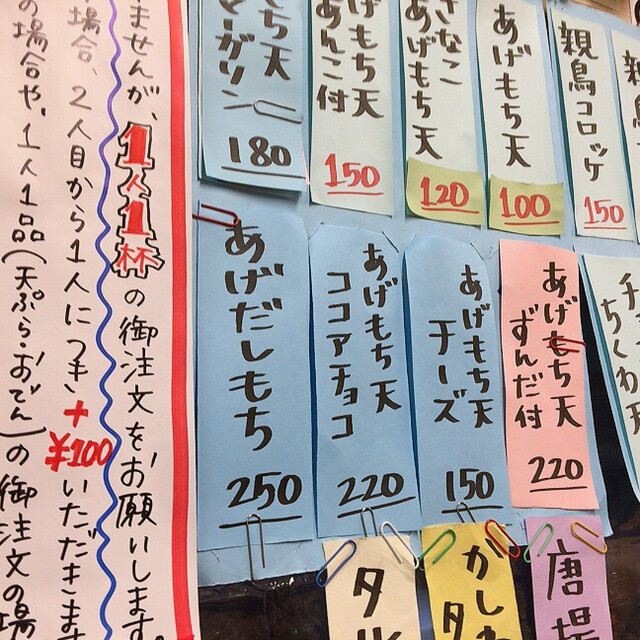 親鳥コロッケ
150
あげもち天
100
きなこ
あげもち天
120
あげもち天
あんこ付
150
もち天
マーガリン
180
チ
ちくわ天
あげもち天
ずんだ付
220
あげもち天
チーズ
150
あげもち天
ココアチョコ
220
あげだしもち
250
唐揚
かしわ
ませんが、1人1杯の御注文をお願いします。
場合、2人目から1人につき+¥100いただきます
の場合や、1人1品(天ぷら・おでん)の御注文の場